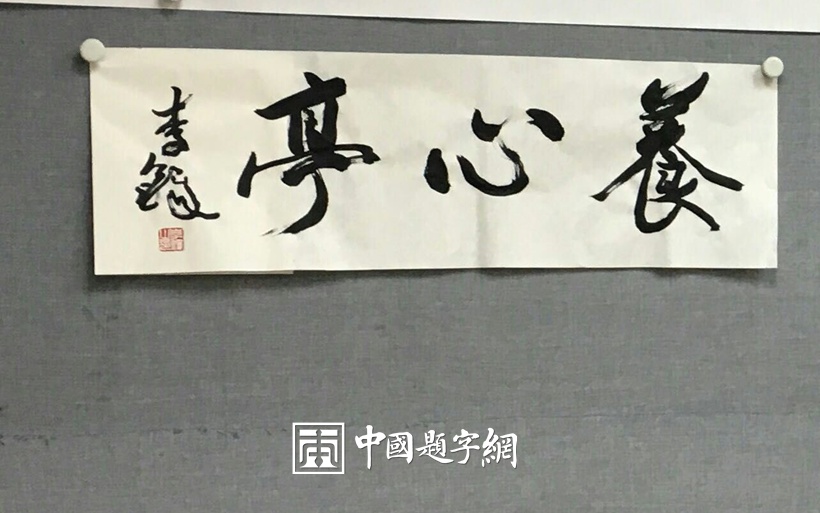 養心亭
李鐸
中國題字網